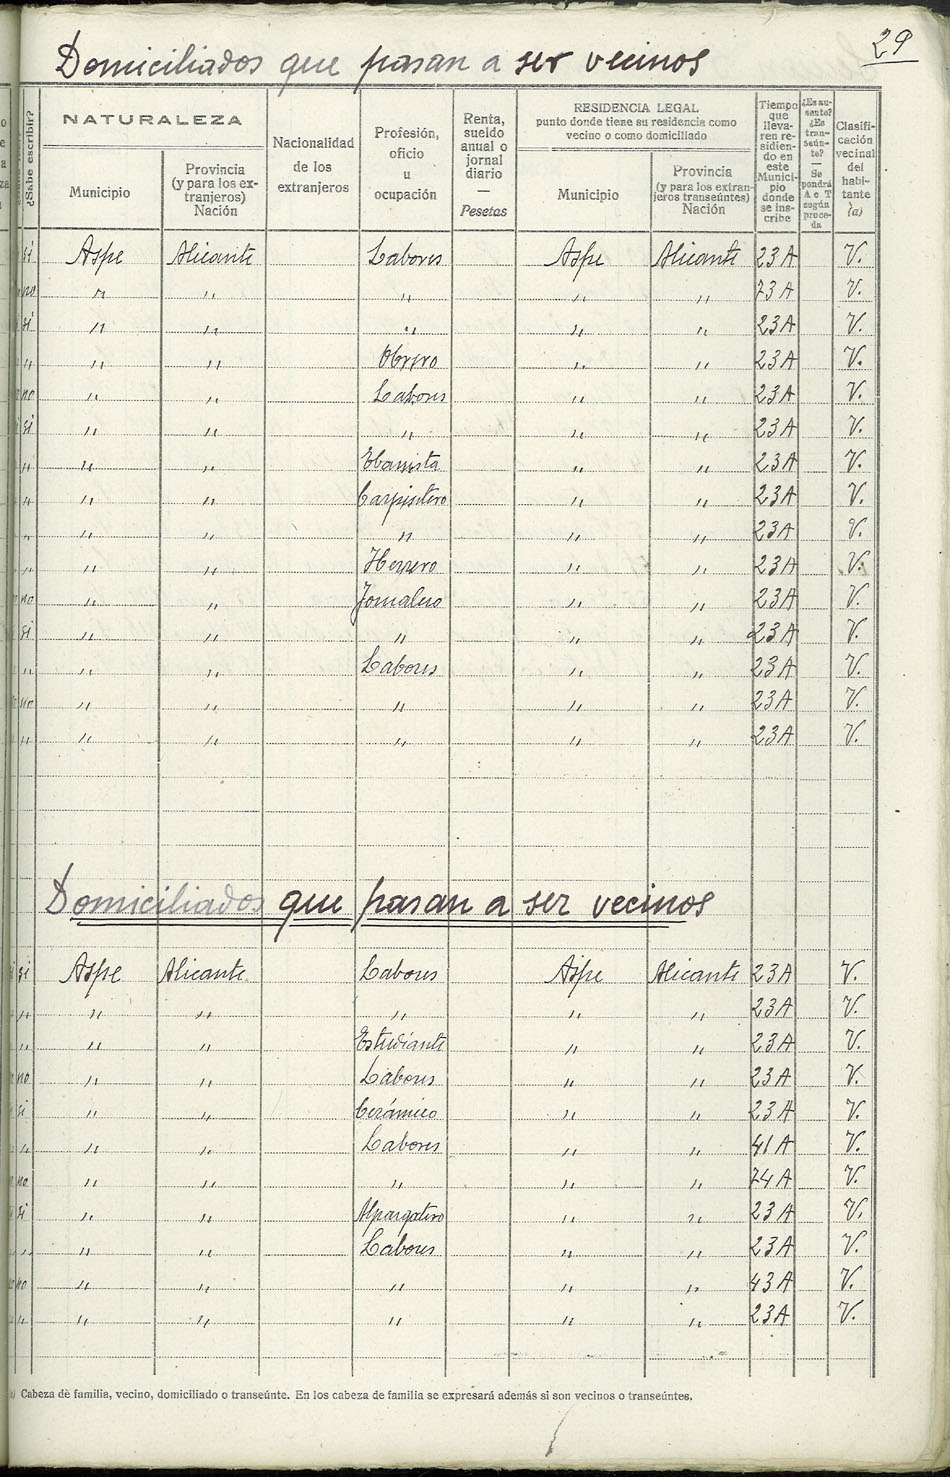 29
Domiciliados que pasan a ser vecinos
¿Sabe escribir?
NATURALEZA
Municipio
Provincia
(y para los ex-
tranjeros)
Nación
Nacionalidad
de los
extranjeros
Profesión,
oficio
u
ocupación
Renta,
sueldo
anual o
jornal
diario
—
Pesetas
RESIDENCIA LEGAL
punto donde tiene su residencia como
vecino o como domiciliado
Municipio
Provincia
(y para los extran-
jeros transeúntes)
Nación
Tiempo
que
lleva-
ren re-
sidien-
do en
este
Munici-
pio
donde
se ins-
cribe
¿Es au-
sente?
¿Es
tran-
seún-
te?
—
Se
pondrá
A o T
según
proce-
da
Clasifi-
cación
vecinal
del
habi-
tante
(a)
si Aspe Alicante Labores Aspe Alicante 23 A V.
no " " " " " 73 A V.
si " " " " " 23 A V.
" " " Obrero " " 23 A V.
no " " Labores " " 23 A V.
si " " " " " 23 A V.
" " " Ebanista " " 23 A V.
" " " Carpintero " " 23 A V.
" " " " " " 23 A V.
" " " Herrero " " 23 A V.
no " " Jornalero " " 23 A V.
si " " " " " 23 A V.
" " " Labores " " 23 A V.
no " " " " " 23 A V.
" " " " " " 23 A V.
Domiciliados que pasan a ser vecinos
si Aspe Alicante Labores Aspe Alicante 23 A V.
" " " " " " 23 A V.
" " " Estudiante " " 23 A V.
no " " Labores " " 23 A V.
si " " Cerámico " " 23 A V.
" " " Labores " " 41 A V.
no " " " " " 74 A V.
si " " Alpargatero " " 23 A V.
" " " Labores " " 23 A V.
no " " " " " 43 A V.
" " " " " " 23 A V.
(a) Cabeza de familia, vecino, domiciliado o transeúnte. En los cabeza de familia se expresará además si son vecinos o transeúntes.